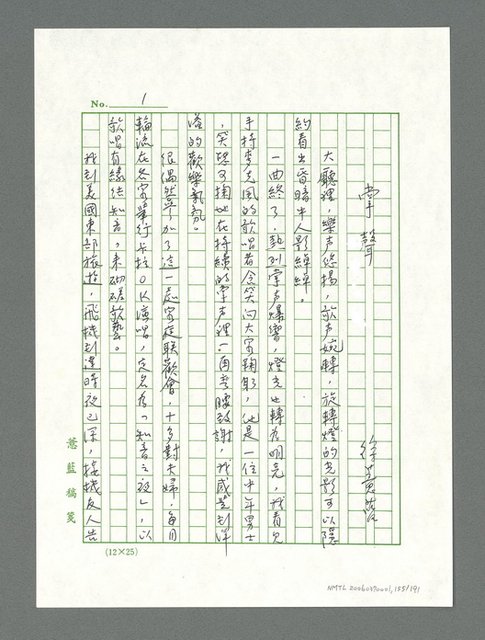 No. 1
掌聲
徐薏藍
大廳裡，樂声悠揚，歌声婉轉，旋轉燈的光影可以隱
約看出昏暗中人影綽綽。
一曲終了，熱烈掌声爆響，燈光也轉為明亮，我看見
手持麥克風的歌唱者含笑向大家鞠躬，他是一位中年男士
，笑容可掬地在持續的掌声裡一再答謝，我感覺到洋
溢的歡樂氣氛。
很偶然參加了這一處家庭联歡會，十多對夫婦，每月
輪流在各家舉行卡拉OK演唱，定名為「知音之夜」，以
歌唱自娛供知音，來切磋歌藝。
我到美國東部旅遊，飛機到達時夜已深，接機友人告
薏藍稿箋
(12×25)
NMTL 20060390001, 185/191